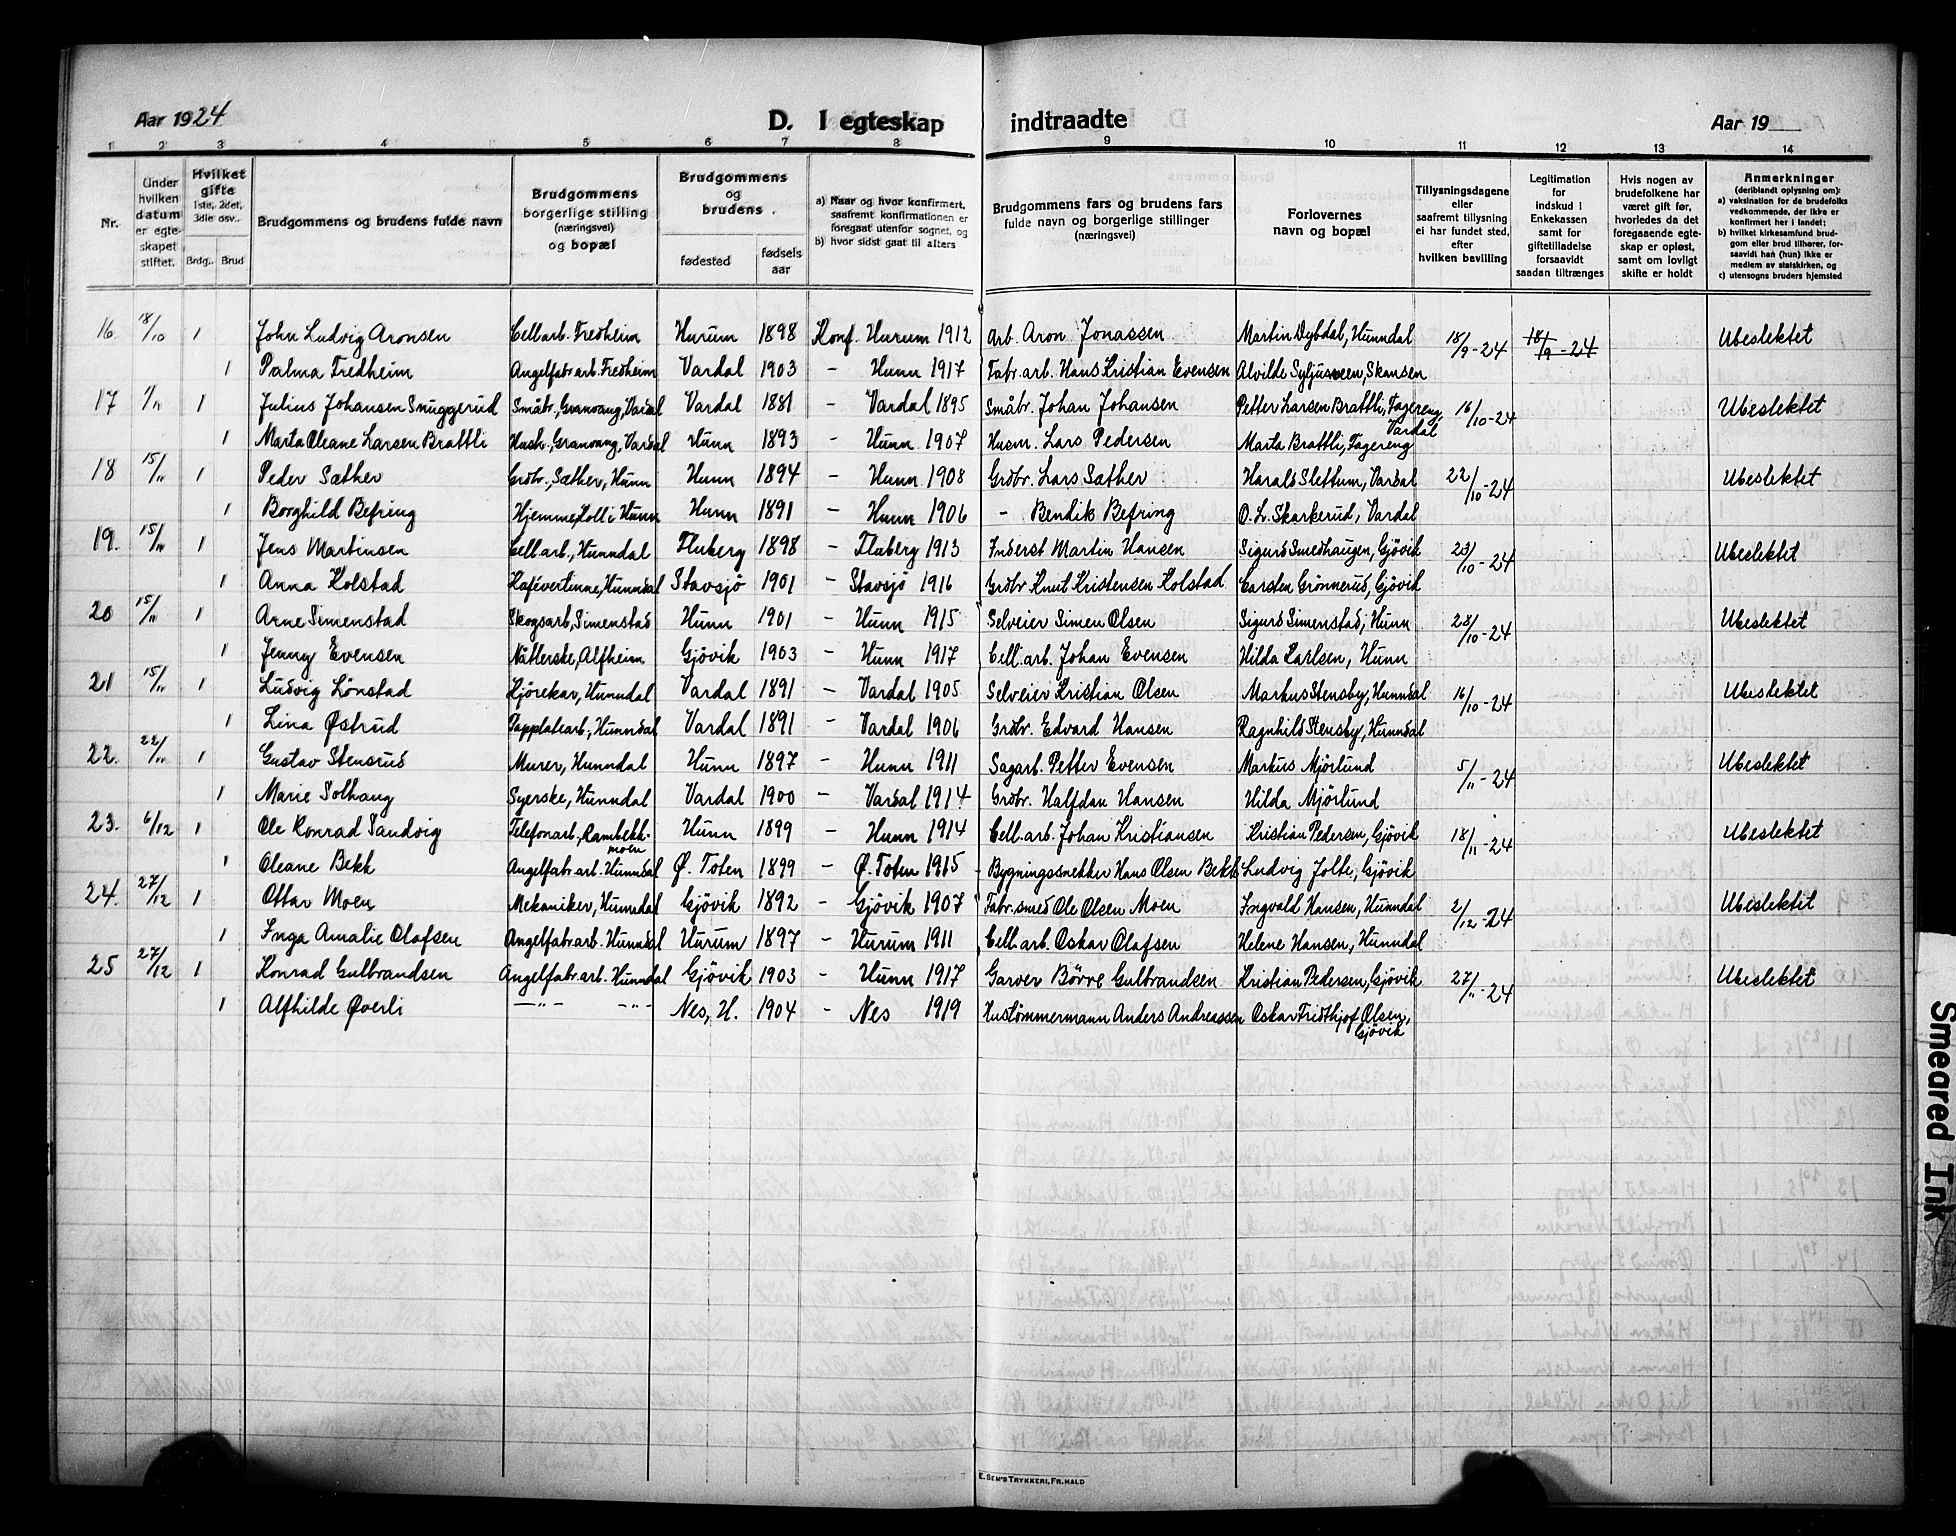 Aar 1924 D. I egteskap indtraadte Aar 19
1 2 3 4 5 6 7 8 9 10 11 12 13 14
Nr.
Under hvilken datum er egteskapet stiftet.
Hvilket gifte 1ste, 2det, 3die osv.
Brdg. Brud
Brudgommens og brudens fulde navn
Brudgommens borgerlige stilling (næringsvei) og bopæl
Brudgommens og brudens
fødested
fødselsaar
a) Naar og hvor konfirmert, saafremt konfirmationen er foregaat utenfor sognet, og
b) hvor sidst gaat til alters
Brudgommens fars og brudens fars fulde navn og borgerlige stillinger (næringsvei)
Forlovernes navn og bopæl
Tillysningsdagene eller saafremt tillysning ei har fundet sted, efter hvilken bevilling
Legitimation for indskud i Enkekassen samt for giftetilladelse forsaavidt saadan tiltrænges
Hvis nogen av brudefolkene har været gift før, hvorledes da det foregaaende egteskap er opløst, samt om lovligt skifte er holdt
Anmerkninger (deriblandt oplysning om): a) vaksination for de brudefolks vedkommende, der ikke er konfirmert her i landet; b) hvilket kirkesamfund brudgom eller brud tilhører, forsaavidt han (hun) ikke er medlem av statskirken, og c) utensogns bruders hjemsted
16 18/10 1 John Ludvig Aronsen Cell.arb. Fredheim Hurum 1898 Konf. Hurum 1912 Arb. Aron Jonassen Martin Dybdal, Hunndal 18/9-24 18/9-24 Ubeslektet
1 Palma Fredheim Angelfabr.arb. Fredheim Vardal 1903 - Hunn 1917 Fabr.arb. Hans Kristian Evensen Alvilde Syljuseen, Skansen
17 1/11 1 Julius Johansen Snuggerud Småbr., Granvang, Vardal Vardal 1881 - Vardal 1895 Småbr. Johan Johansen Petter Larsen Brattli, Fagereng, Vardal 16/10-24 Ubeslektet
1 Marta Oleane Larsen Brattli Hush., Granvang, Vardal Hunn 1893 - Hunn 1907 Husm. Lars Pedersen Marta Brattli, Fagereng
18 15/11 1 Peder Sæther Grdbr., Sæther, Hunn Hunn 1894 - Hunn 1908 Grdbr. Lars Sæther Harald Slettum, Vardal 22/10-24 Ubeslektet
1 Borghild Befring Hjemme, Holl i Hunn Hunn 1891 - Hunn 1906 - Bendik Befring O. L. Skarkerud, Vardal
19. 15/11 1 Jens Martinsen Cell.arb., Hunndal Fluberg 1898 - Fluberg 1913 Inderst Martin Hansen Sigurd Smedhaugen, Gjövik 23/10-24 Ubeslektet
1 Anna Kolstad Kafévertinne, Hunndal Stavsjø 1901 - Stavsjø 1916 Grdbr Knut Kristensen Kolstad Carsten Grönnerud, Gjövik
20 15/11 1 Arne Simenstad Skogsarb, Simenstad Hunn 1901 - Hunn 1915 Selveier Simen Olsen Sigurd Simenstad, Hunn 23/10-24 Ubeslektet
1 Jenny Evensen Nåtlerske, Alfheim Gjövik 1903 - Hunn 1917 Cell.arb. Johan Evensen Hilda Karlsen, Hunn
21 15/11 1 Ludvig Lönstad Kjörekar, Hunndal Vardal 1891 - Vardal 1905 Selveier Kristian Olsen Markus Stensby, Hunndal 16/10-24 Ubeslektet
1 Lina Østrud Papplatearb., Hunndal Vardal 1891 - Vardal 1906 Grdbr. Edvard Hansen Ragnhild Stensby, Hunndal
22. 22/11 1 Gustav Stensrud Murer, Hunndal Hunn 1897 - Hunn 1911 Sagarb. Petter Evensen Markus Mjörlund 5/11-24 Ubeslektet
1 Marie Solhaug Syerske, Hunndal Vardal 1900 - Vardal 1914 Grdbr. Halfdan Hansen Hilda Mjörlund
23. 6/12 1 Ole Konrad Sandvig Telefonarb, Rambekkmoen Hunn 1899 - Hunn 1914 Cell.arb. Johan Kristiansen Kristian Pedersen, Gjövik 18/11-24 Ubeslektet
1 Oleane Bekk Angelfabr.arb. Hunndal Ø. Toten 1899 - Ø. Toten 1915 Bygningssnekker Hans Olsen Bekk Ludvig Jolte, Gjövik
24. 27/12 1 Ottar Moen Mekaniker, Hunndal Gjövik 1892 - Gjövik 1907 Fabr.smed Ole Olsen Moen Ingvald Hansen, Hunndal 2/12-24 Ubeslektet
1 Inga Amalie Olafsen Angelfabr.arb. Hunndal Hurum 1897 - Hurum 1911 Cell.arb. Oskar Olafsen Helene Hansen, Hunndal
25 27/12 1 Konrad Gulbrandsen Angelfabr.arb. Hunndal Gjövik 1903 - Hunn 1917 Garver Börre Gulbrandsen Kristian Pedersen, Gjövik 27/11-24 Ubeslektet
1 Alfhilde Överli —"— —"— Nes, H. 1904 - Nes 1919 Hustömmermann Anders Andreassen Oskar Fridthjof Olsen, Gjövik
E. SEM'S TRYKKERI, FR.HALD
Smeared Ink